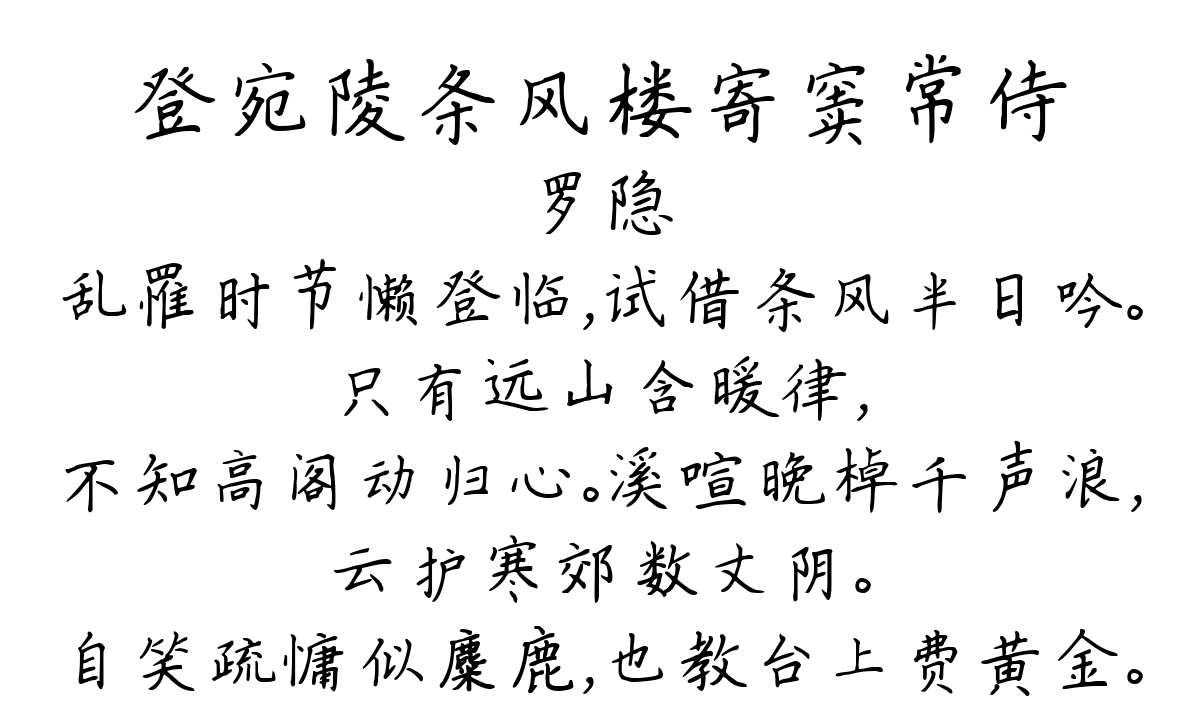 登宛陵条风楼寄窦常侍
罗隐
乱罹时节懒登临,试借条风半日吟。
只有远山含暖律,
不知高阁动归心。溪喧晚棹千声浪,
云护寒郊数丈阴。
自笑疏慵似麋鹿,也教台上费黄金。